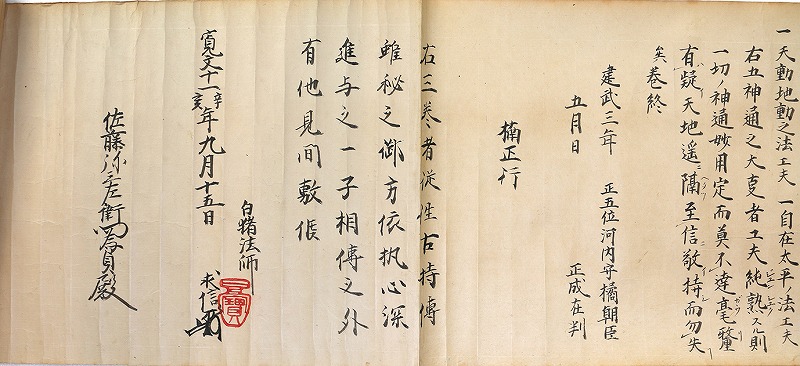 一天動地動之法工夫 一自在太平ノ法工夫
右五神通之大事者工夫純熟スル則
一切ノ神通妙用定而莫不達毫釐
有疑天地遥隔至信敬持而勿失
矣巻終
建武三年 正五位河内守橘朝臣
五月日 正成在判
楠正行
右三巻者従往古持傳
雖秘之御方依執心深
進与之一子相傳之外
有他見間敷候
寛文十一辛亥年九月十五日
白猪法師
求信
佐藤弥左衛門殿